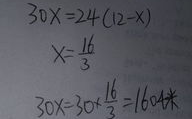 30x=24(12-x)
x=16/3
30x=30×16/3=160米